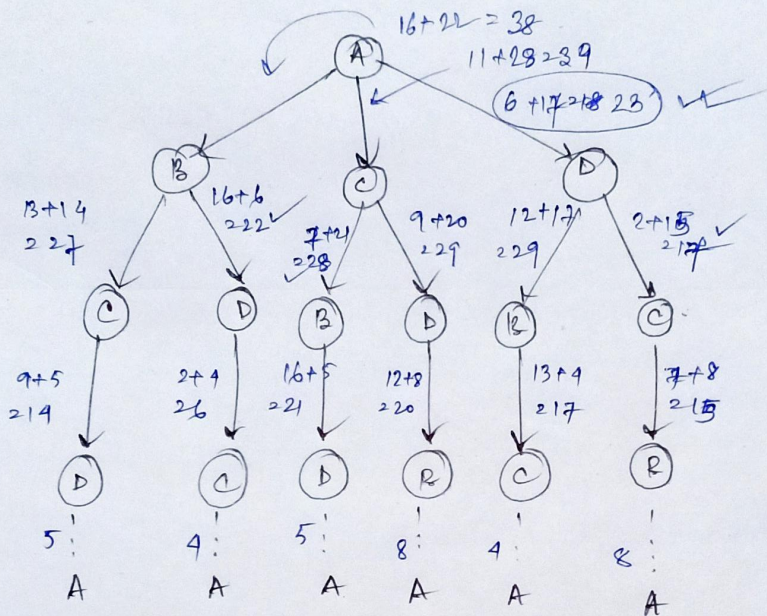 16+22 = 38
A
11+28=39
6 +17=23
B
C
D
13+14
=27
16+6
=22
7+21
=28
9+20
=29
12+17
=29
2+15
=17
C
D
B
D
B
C
9+5
=14
2+4
=6
16+5
=21
12+8
=20
13+4
=17
7+8
=15
D
C
D
B
C
B
5
4
5
8
4
8
A
A
A
A
A
A